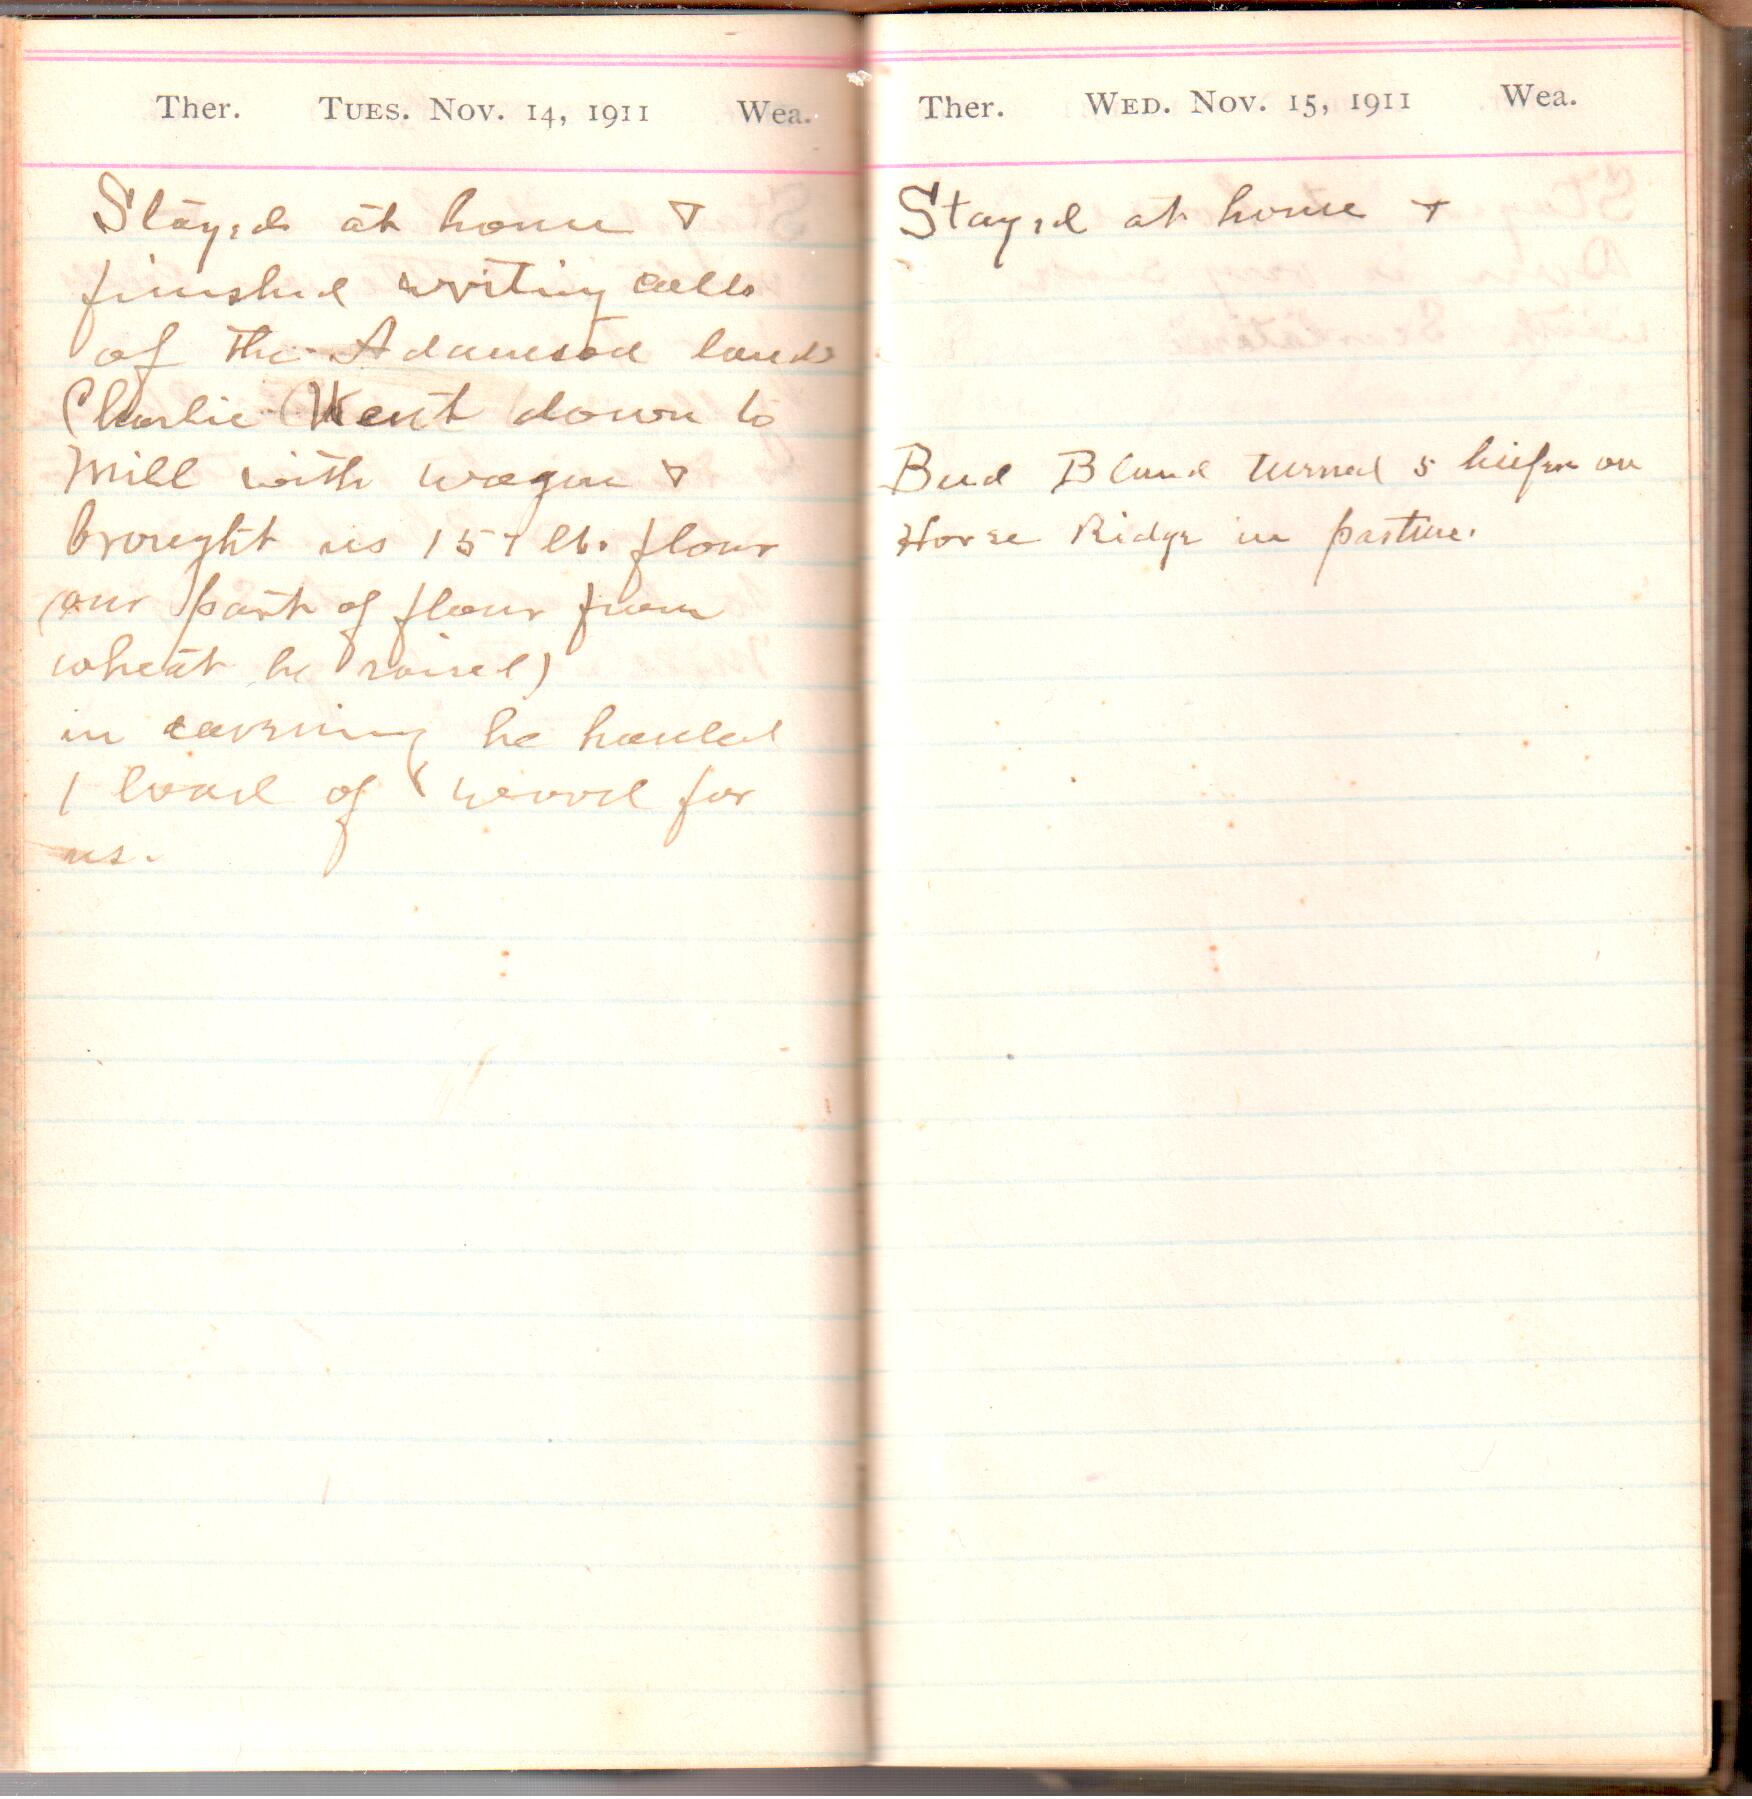 Ther. TUES. NOV. 14, 1911 Wea.
Stayed at home &
finished writing calls
of the Adamson land
Charlie Went down to
Mill with wagon &
brought us 157 lb. flour
(our part of flour from
wheat he raised)
in evening he hauled
1 load of wood for
us.
Ther. WED. NOV. 15, 1911 Wea.
Stayed at home &
Bud Bland turned 5 heifers on
Horse Ridge in pasture.